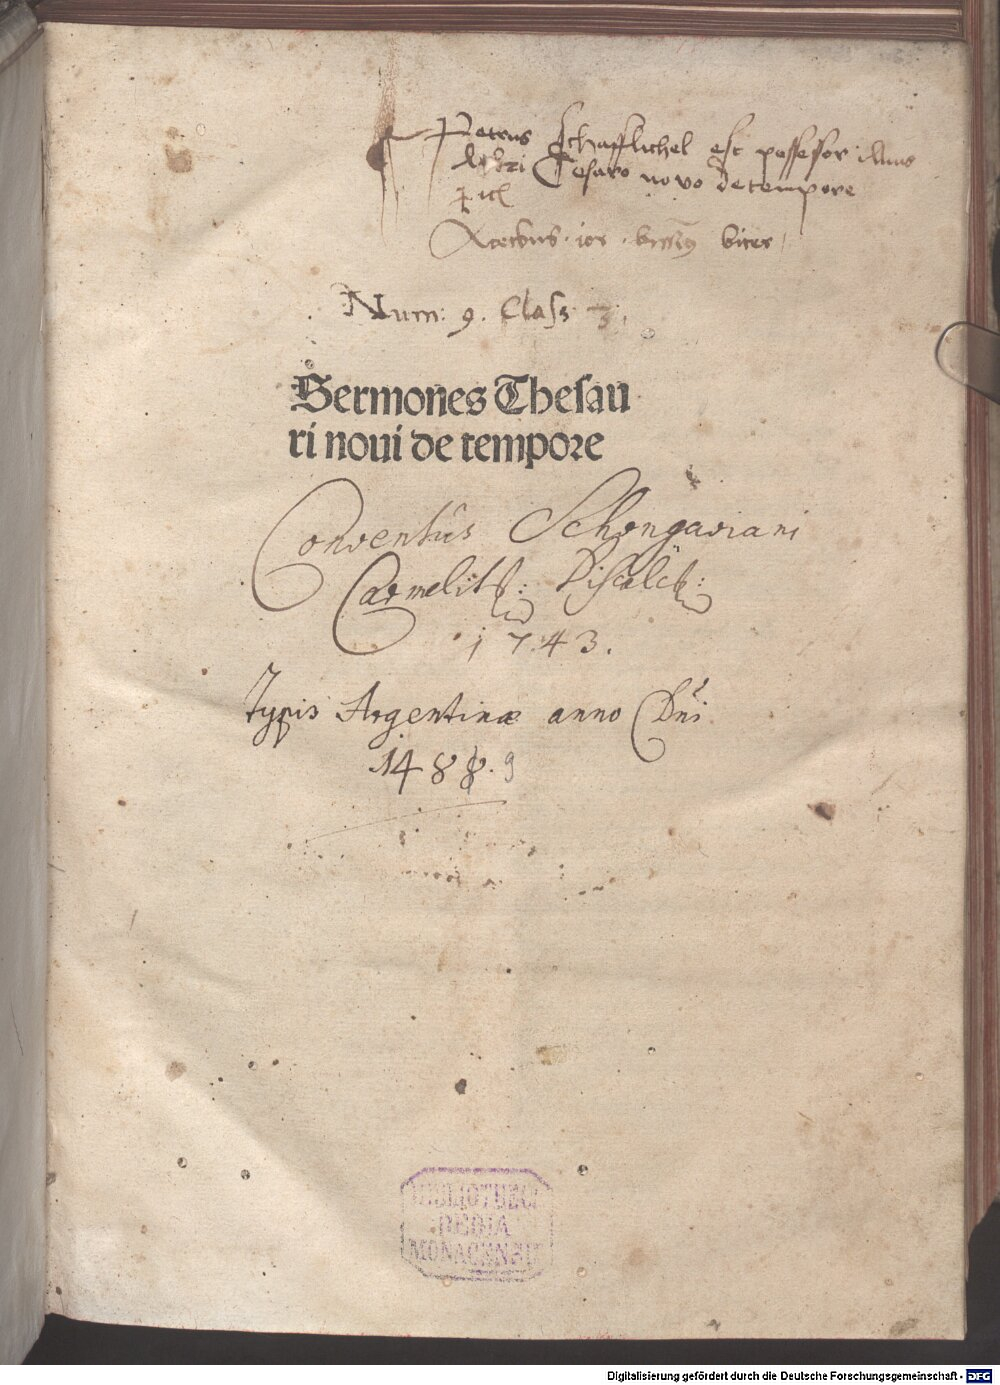 Petrus Schafflichel est possessor illius
libri Tesaro novo de tempore
Num: 9. Class 3.
Sermones Thesau
ri noui de tempore
Conventûs Schongaviani
Carmelit: Discalc:
1743.
Typis Argentinæ anno Dni
1488. 9
BIBLIOTHECA
REGIA
MONACENSIS
Digitalisierung gefördert durch die Deutsche Forschungsgemeinschaft - DFG